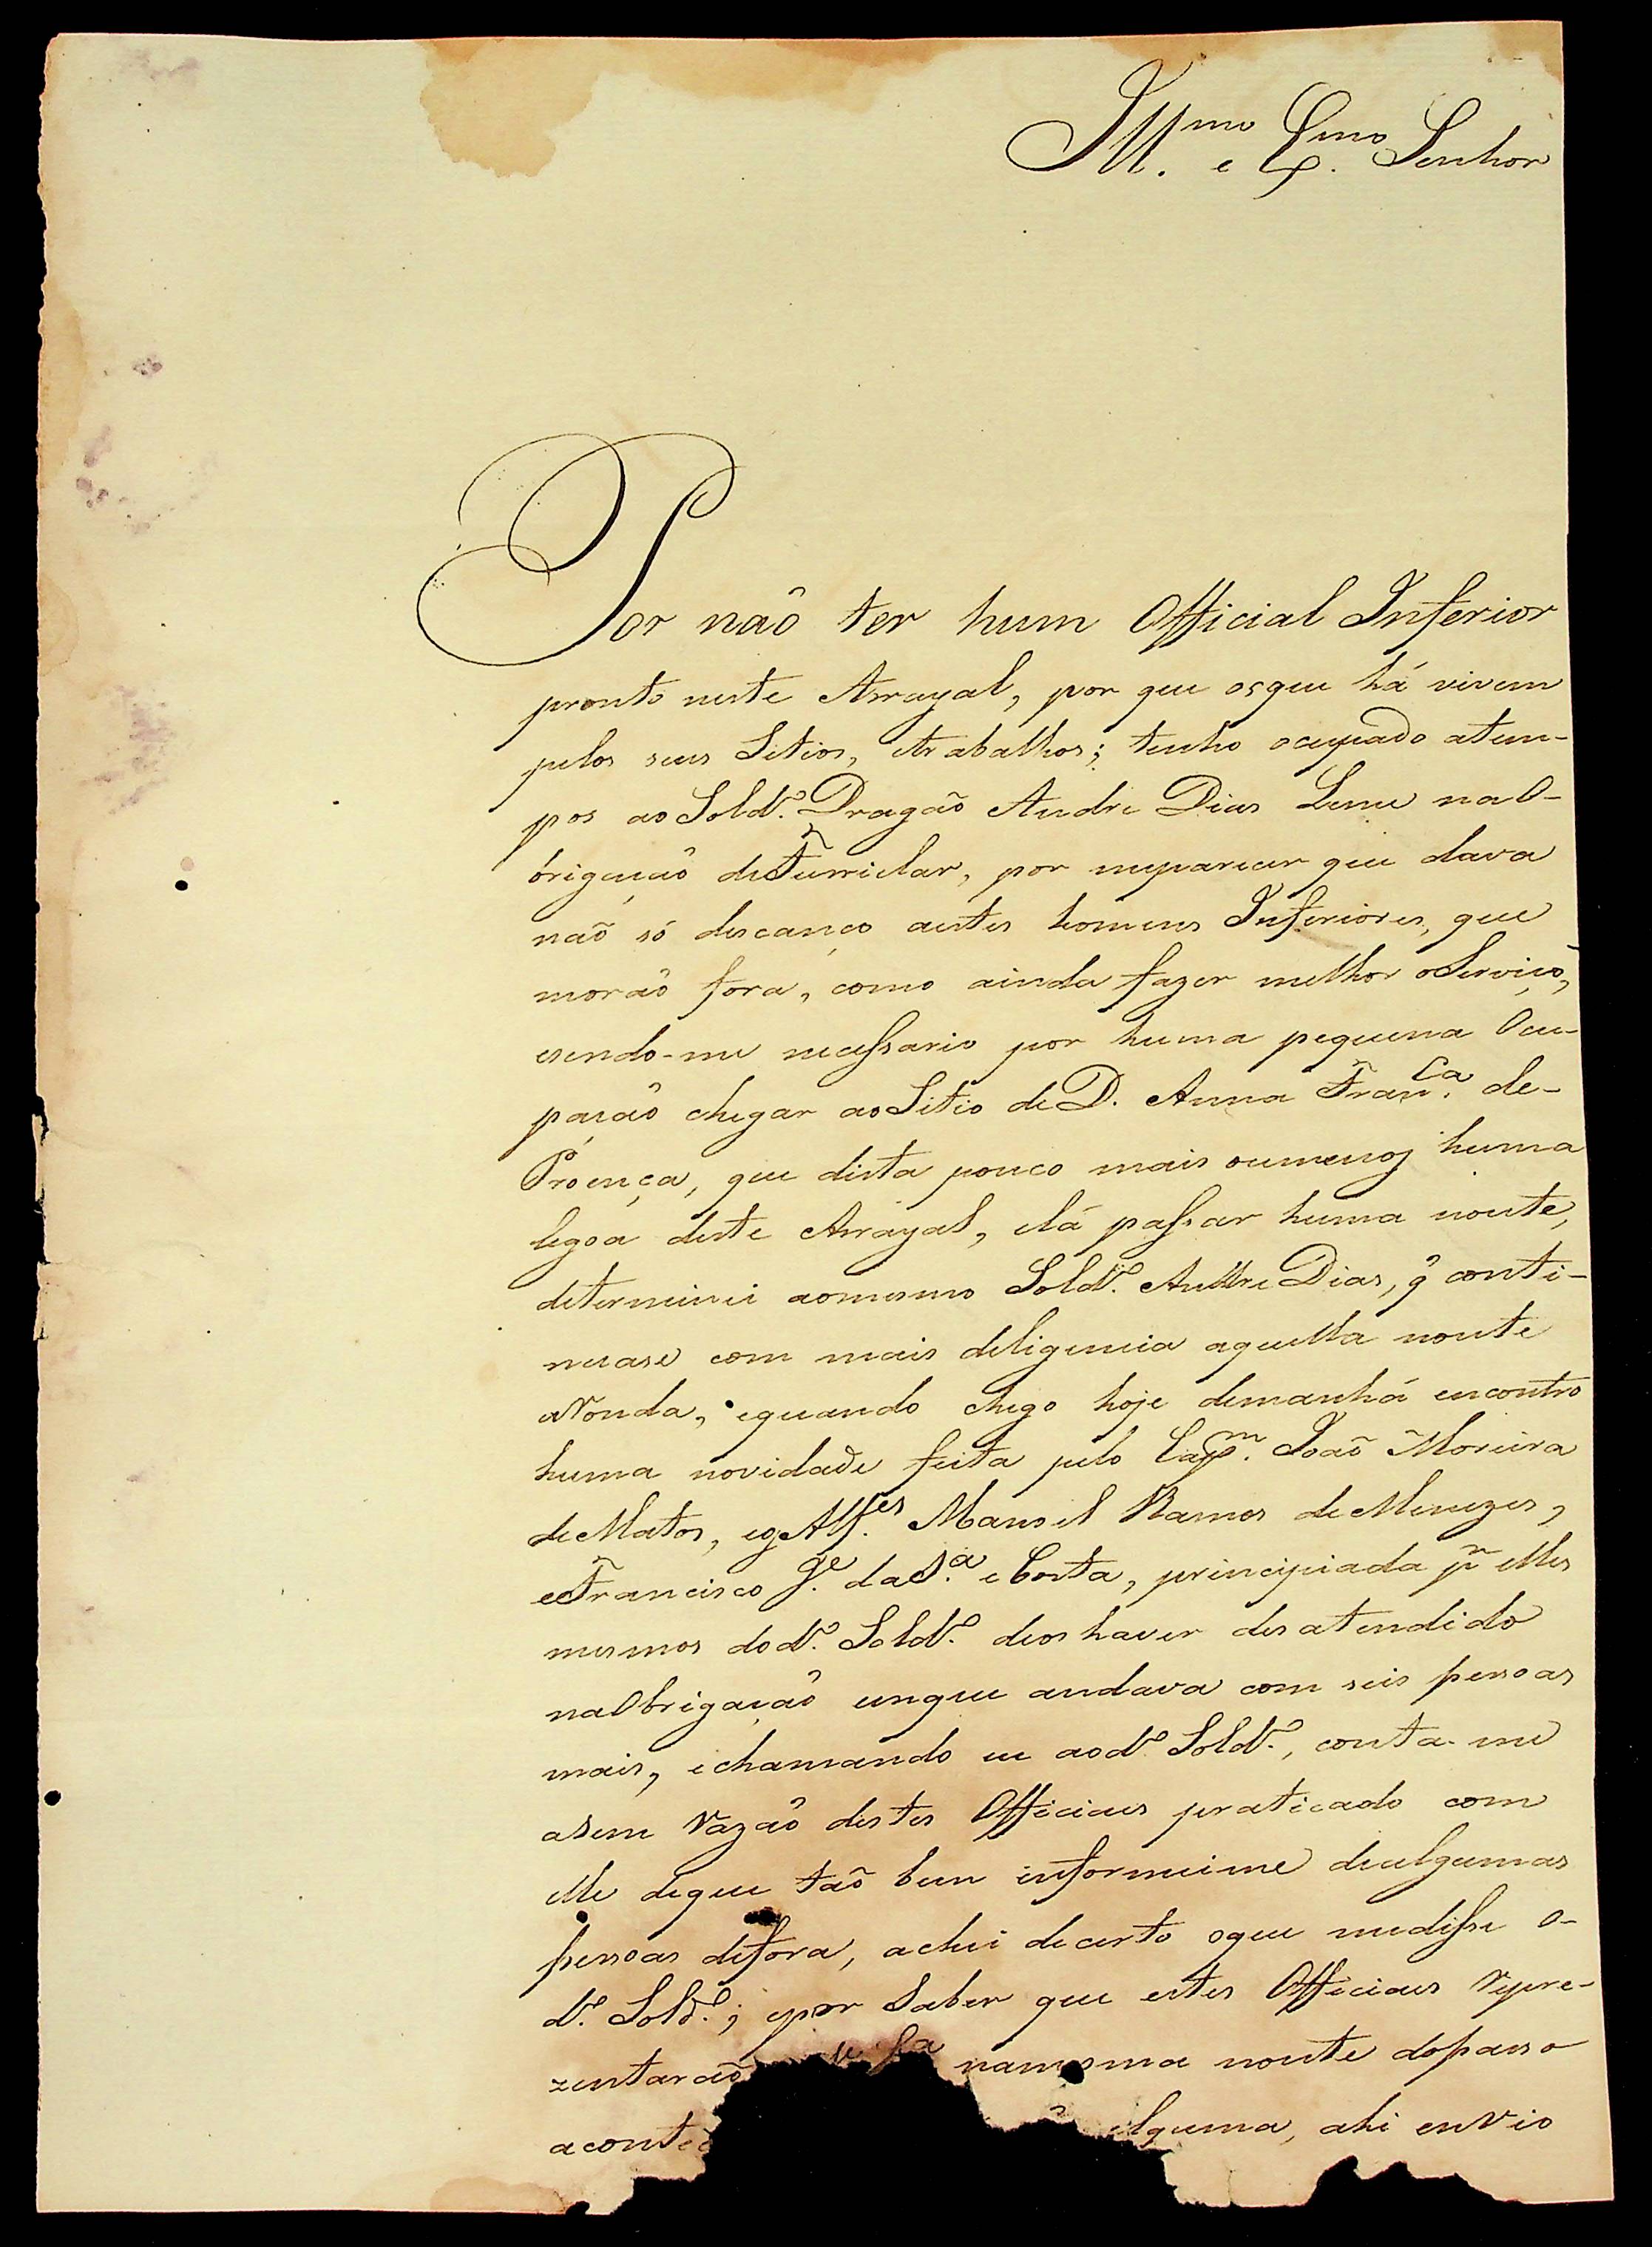 Ill.mo e Ex.mo Senhor
Por naõ ter hum Official Inferior
pronto neste Arrayal, por que osque há vivem
pelos seus Sitios, etrabalhos; tenho ocupado atem-
pos ao Sold.o Dragaõ Andre Dias Leme na O-
brigaçaõ deFurrielar, por meparecer que dava
naõ só descanço aestes homens Inferiores, que
moraõ fora, como ainda fazer melhor oServiço,
esendo-me necessario por huma pequena Ocu-
paçaõ chegar aoSitio deD. Anna Fran.ca de-
Proença, que dista pouco mais oumenos huma
legoa deste Arrayal, elá passar huma noute,
determinei aomesmo Sold.o Andre Dias, q̃ conti-
nuase com mais deligencia aquella noute
aRonda, equando chego hoje demanhá encontro
huma novidade feita pelo Cap.m Joaõ Moreira
deMatos, eos Alf.es Manoel Ramos deMenezes,
eFrancisco J.e daS.a eCosta, principiada p.r elles
mesmos dod.o Sold.o deos haver desatendido
naObrigaçaõ emque andava com seis pessoas
mais, echamando eu aod.o Sold.o, conta-me
asem Razaõ destes Officiaes praticado com
elle deque taõ bem informeime dealgumas
pessoas defora, achei decerto oque medisse o-
d.o Sold.o; epor Saber que estes Officiaes Repre-
zentaraõ namesma noute dopasso
aconte alguma, ahi enVio